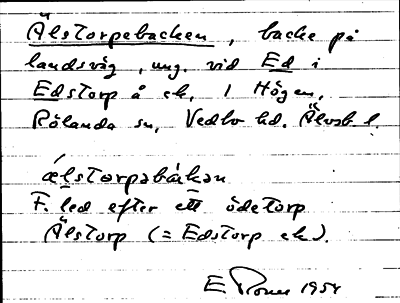 Älstorpebacken, backe på
landsväg, ung. vid Ed i
Edstorp å ek. 1 Högen,
Rölanda sn, Vedbo hd. Älvsb. l.
ælstorpabákən
F. led efter ett ödetorp
Älstorp (= Edstorp ek).
E 1954